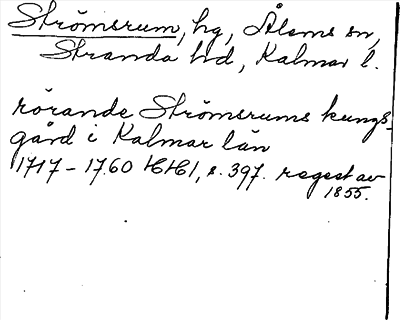 Strömsrum, hg, Ålems sn,
Stranda hd, Kalmar l.
rörande Strömsrums kungs-
gård i Kalmar län
1717-1760 HHI, s. 397. regest av
1855.